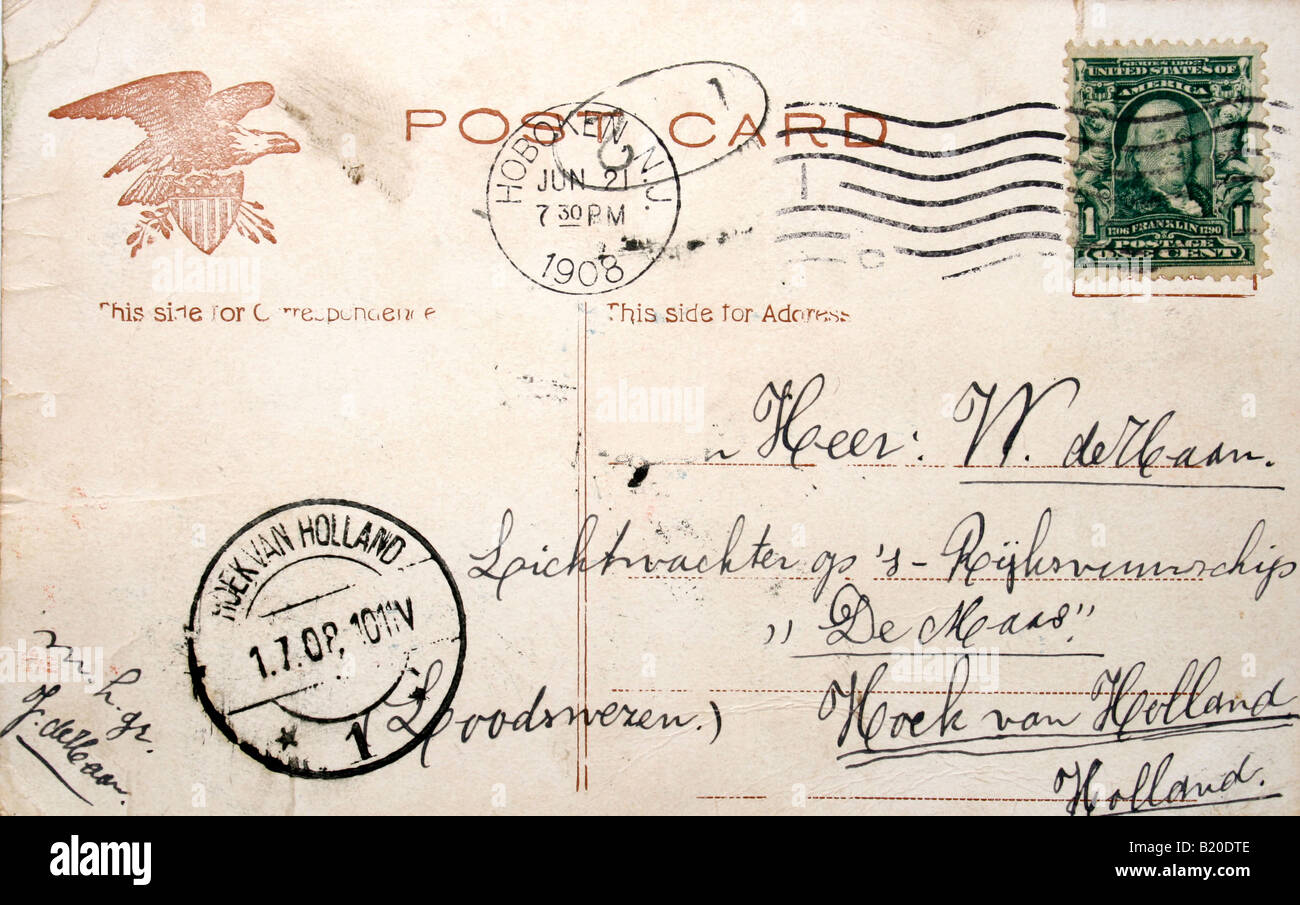 POST CARD
HOBOKEN, N.J.
JUN 21
7 30 PM
1908
1
SERIES 1902
UNITED STATES OF
AMERICA
1 1706 FRANKLIN 1790 1
POSTAGE
ONE CENT
This side for Correspondence
This side for Address
Heer: W. de Haan.
Lichtwachter op 's-Rijksvuurschip
„De Maas"
(Loodswezen.)
Hoek van Holland
Holland.
HOEK VAN HOLLAND
1.7.08, 10 11V
* 1 *
m. h. gr.
J. de Haan.
alamy
alamy
Image ID: B20DTE
www.alamy.com